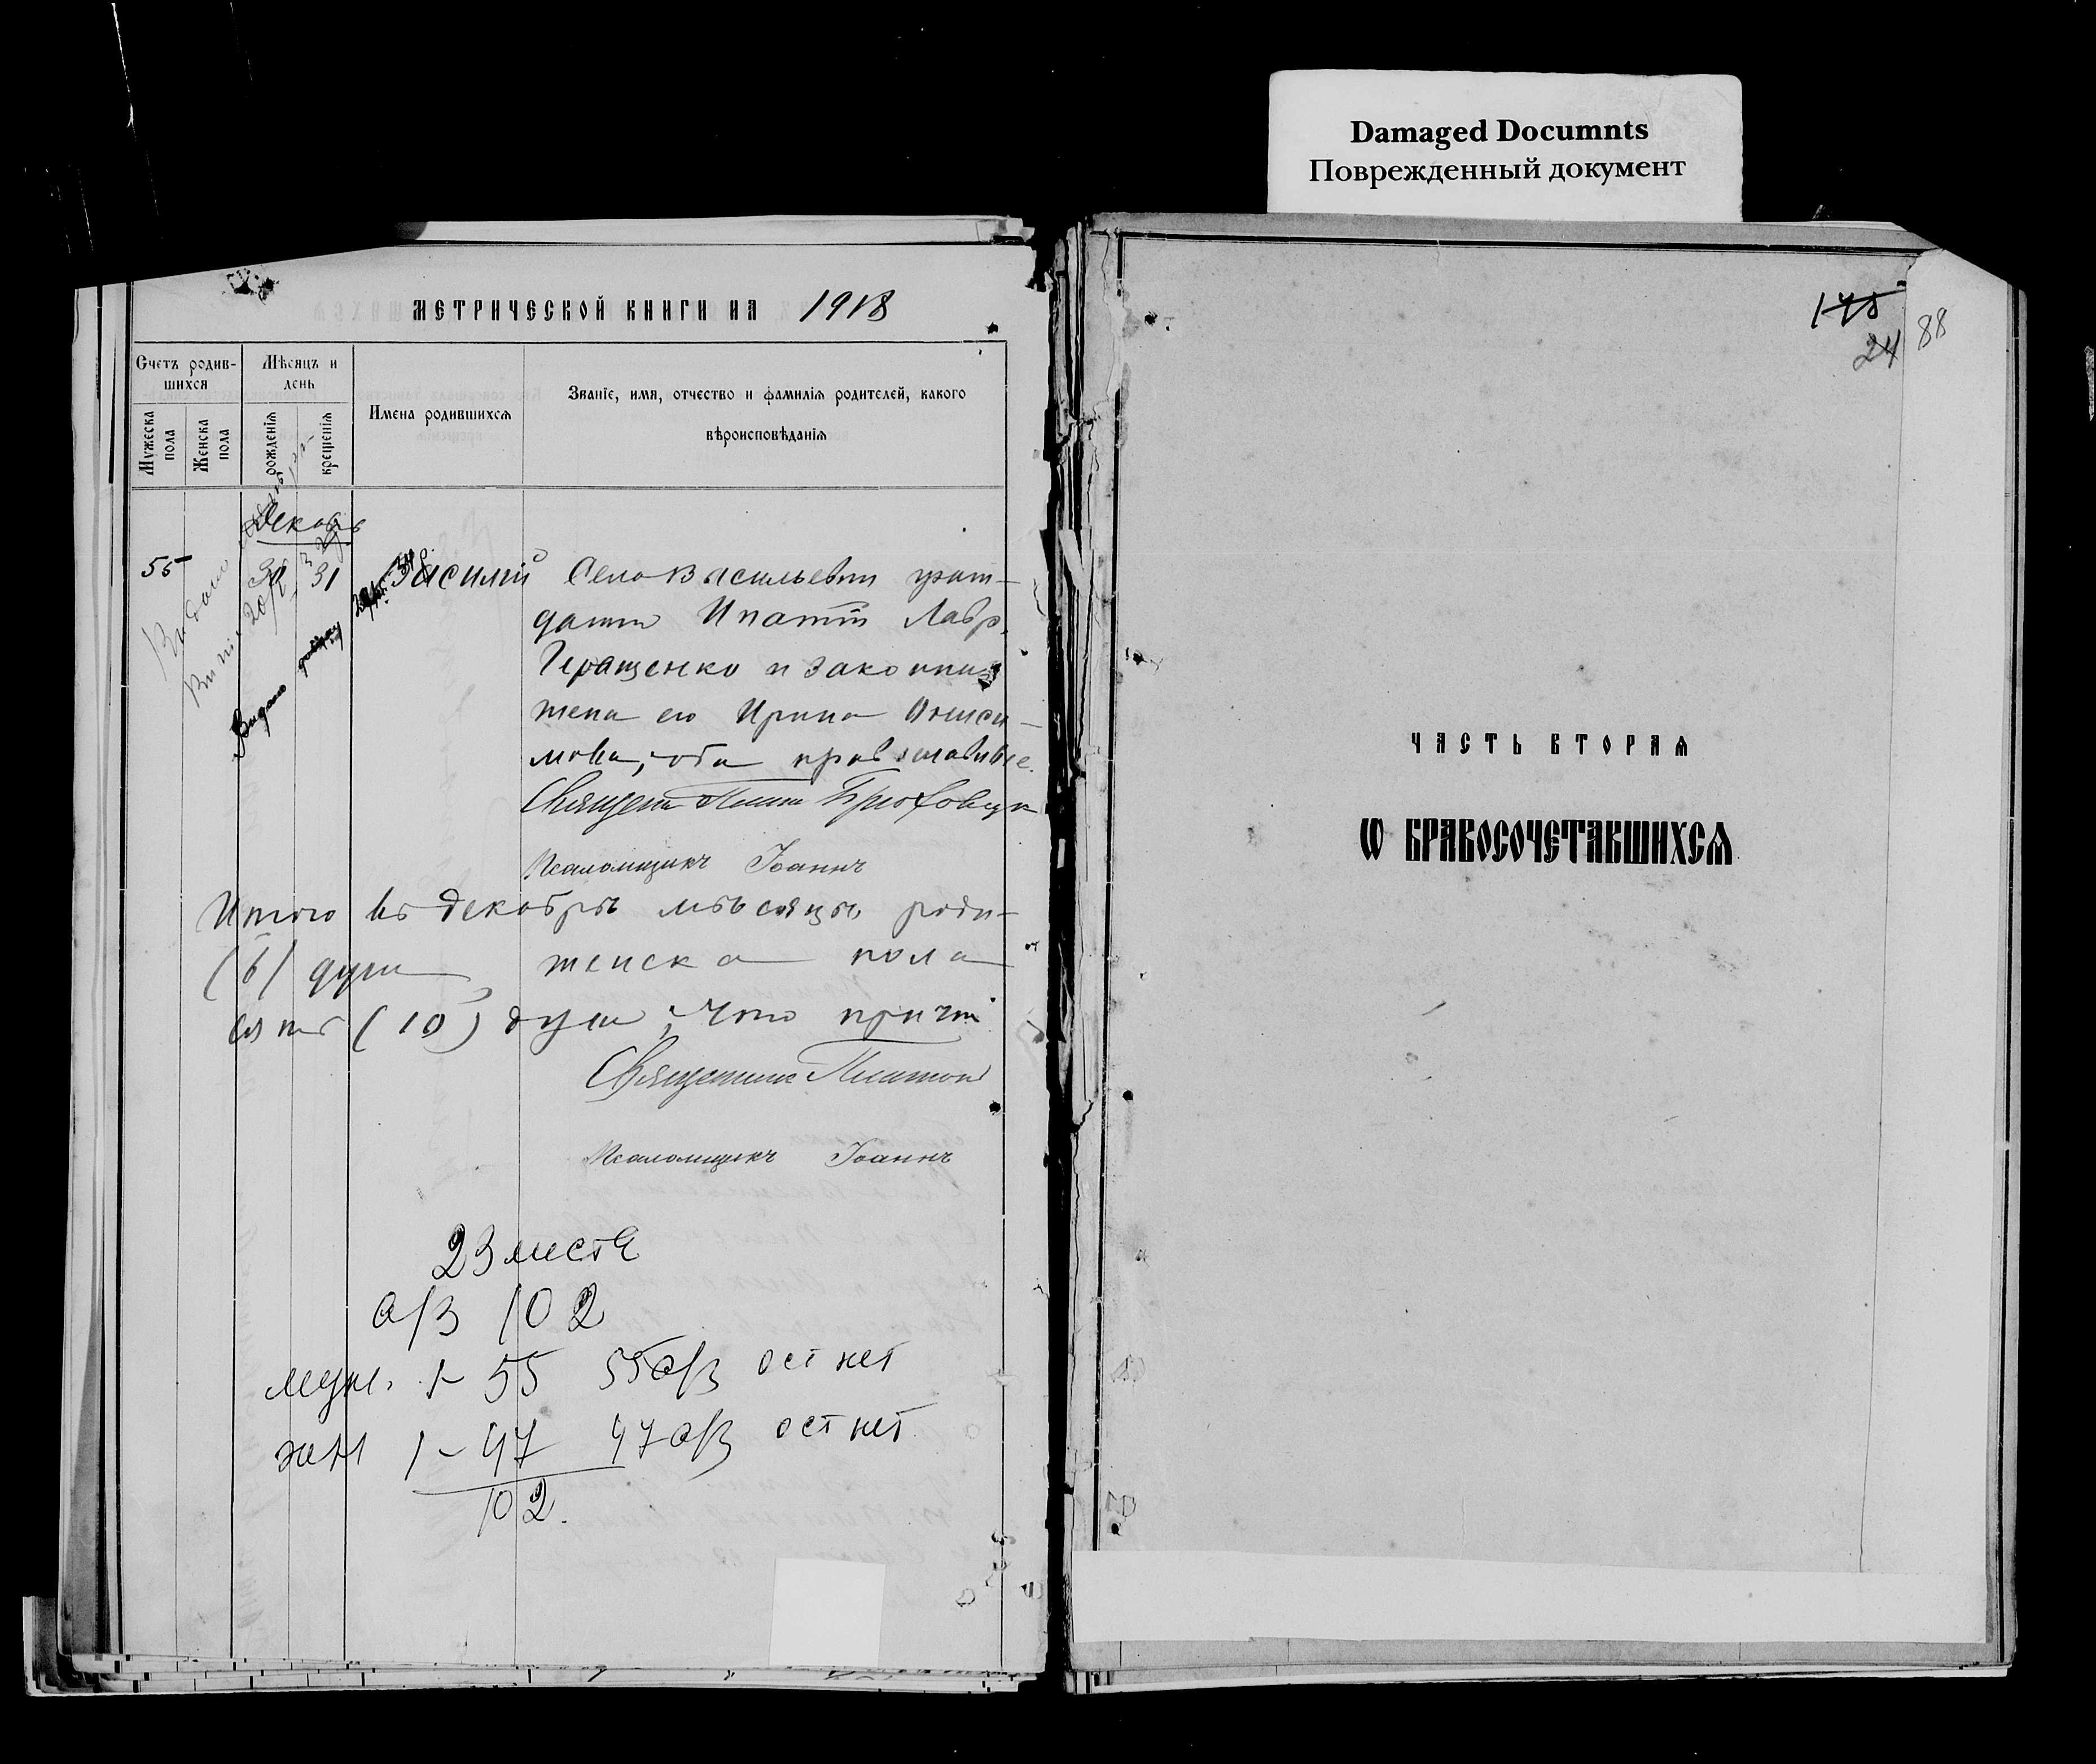 Damaged Documnts
Поврежденный документ
МЕТРИЧЕСКОЙ КНИГИ НА 1918
Счетъ родив-
шихся
Мѣсяцъ и
день
Имена родившихся
Званіе, имя, отчество и фамилія родителей, какого
вѣроисповѣданія
Мужеска пола
Женска пола
рожденія
крещенія
Декабрь
55 30 31 Василій Села Васильевки граж-
данинъ Ипатій Лавр.
Геращенко и законная
жена его Ирина Ониси-
мова, оба православные.
Священ Платон Бряховецк
Псаломщикъ Іоаннъ
Итого въ декабрѣ мѣсяцѣ роди-
(6) душъ, женска пола
(10) душъ, Что причт
Священник Платон
Псаломщикъ Іоаннъ
23 листа
а/з 102
муж. 1-55 55 а/з ост нет
жен 1-47 47 а/з ост нет
102.
Выдано
148
24 88
ЧАСТЬ ВТОРАЯ
Ѡ БРАКОСОЧЕТАВШИХСЯ